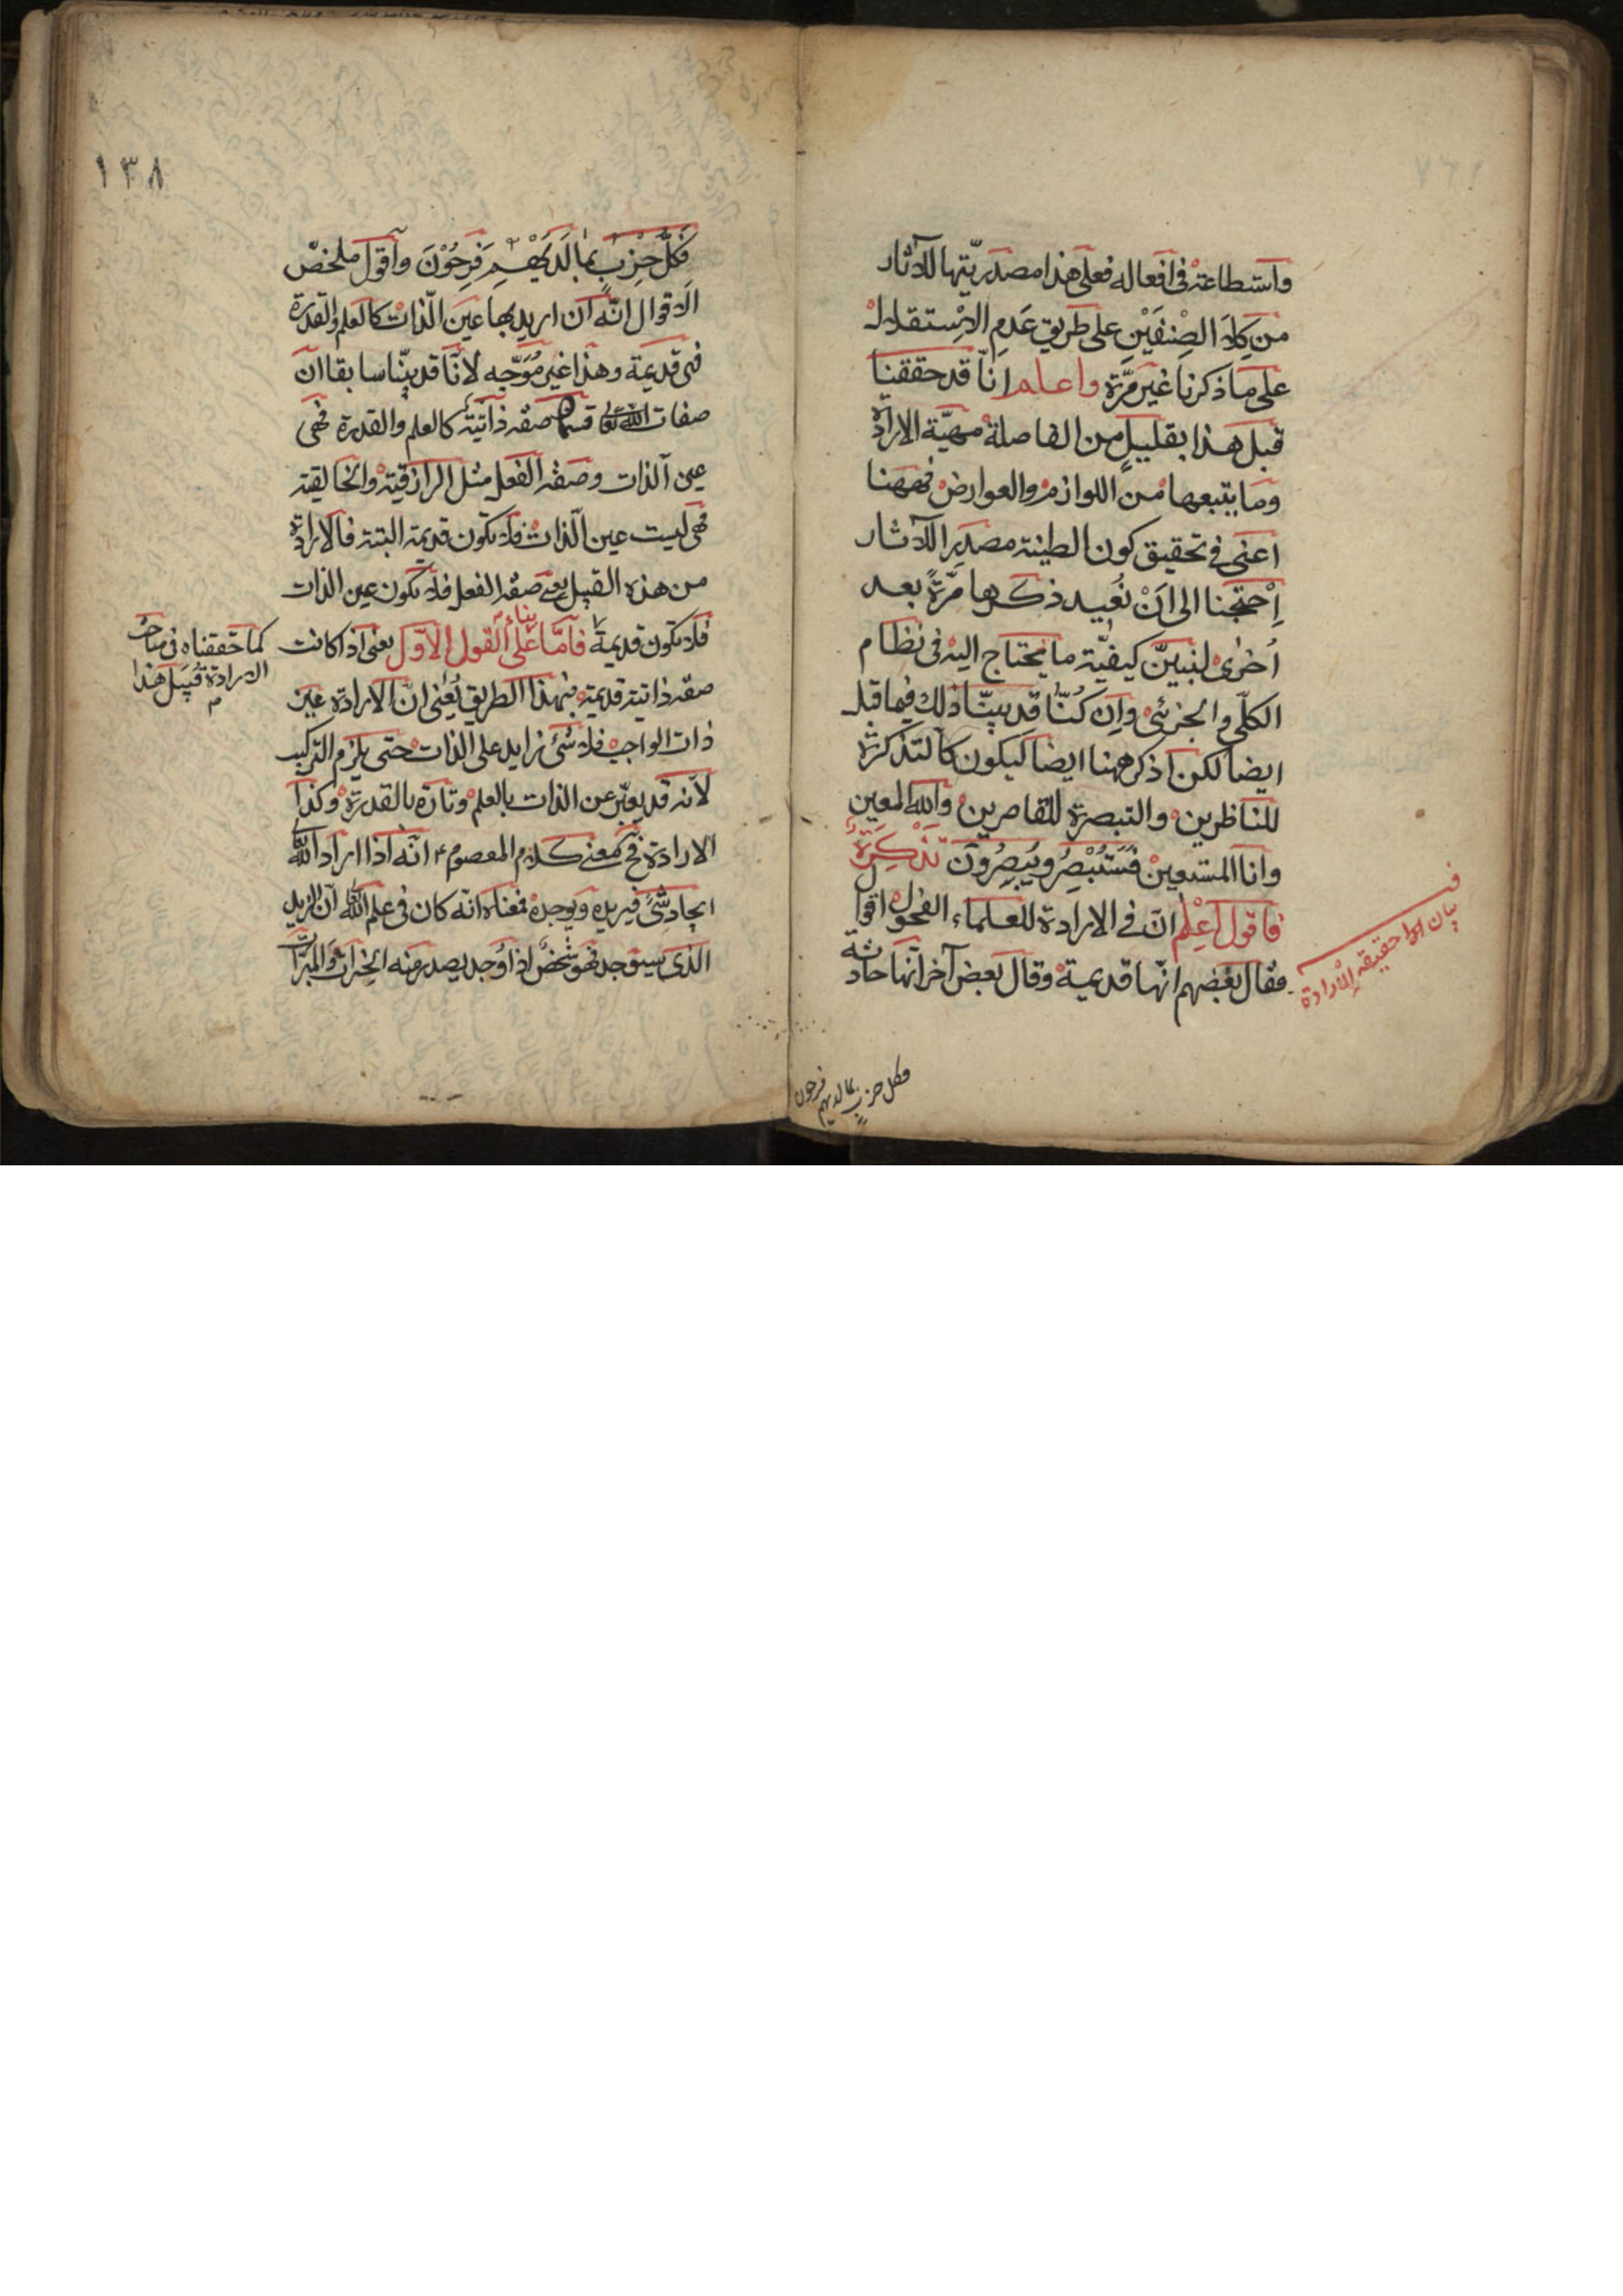 واستطاعته في افعاله فعلى هذا مصدريتها للآثار
من كلا الصِنفَيْنِ على طريق عَدَمِ الاِستقلال
على ما ذكرنا غير مرّة واعلم انّا قد حققنا
قبل هذا بقليلٍ من الفاصلة مهيّة الارادة
وما يتبعها من اللوازم والعوارض فههنا
اعنى في تحقيق كون الطينة مصدرا للآثار
اِحتجنا الى اَنْ نُعيد ذكرها مَرّةً بعد
اُخرى لنبيّن كيفيّة ما يحتاج اليه في نظام
الكلّي والجزئي وان كنّا قد بيّنّا ذلك فيما قبل
ايضا لكن اذكر ههنا ايضا ليكون كالتذكرة
للناظرين والتبصرة للقاصرين والله المعين
وانا المستعين فستبصر ويبصرون تَذْكِرَةٌ
فاقول اعلم انّ في الارادة للعلماء الفحول اقوال
فقال بعضهم انّها قديمة وقال بعض آخر انها حادثة
في بيان حقيقة الارادة
فكل حزب بما لديهم فرحون
١٣٨
فَكُلُّ حِزْبٍ بِمَا لَدَيْهِمْ فَرِحُوْنَ وأقول ملخص
الاقوال انّه ان اريد بها عين الذات كالعلم والقدرة
فهى قديمة وهذا غير مُوَجّه لانّا قد بيّنّا سابقا ان
صفات الله تعالى قسمان صفة ذاتية كالعلم والقدرة فهى
عين الذات وصفة الفعل مثل الرازقية والخالقية
فهى ليست عين الذات فلا تكون قديمة البتة فالارادة
من هذه القبيل يعنى صفة الفعل فلا تكون عين الذات
فلا تكون قديمة فأمّا بناءً على القول الاوّل يعنى اذا كانت
كما حققناه في مباحث
الارادة قُبَيل هذا
م
صفة ذاتية قديمة فبهذا الطريق يُعنى انّ الارادة عين
ذات الواجب فلا شئ زايد على الذات حتى يلزم التركيب
لانه قد يعبّر عن الذات بالعلم وتارة بالقدرة وكذا
الارادة فح معنى كلام المعصوم ع انّه اذا اراد الله
ايجاد شئ فيريده ويوجده فمعناه انّه كان في علم الله ان الزيد
الذى سيوجد فهو شخص اذا وجد يصدر منه الخيرات والمبرّات